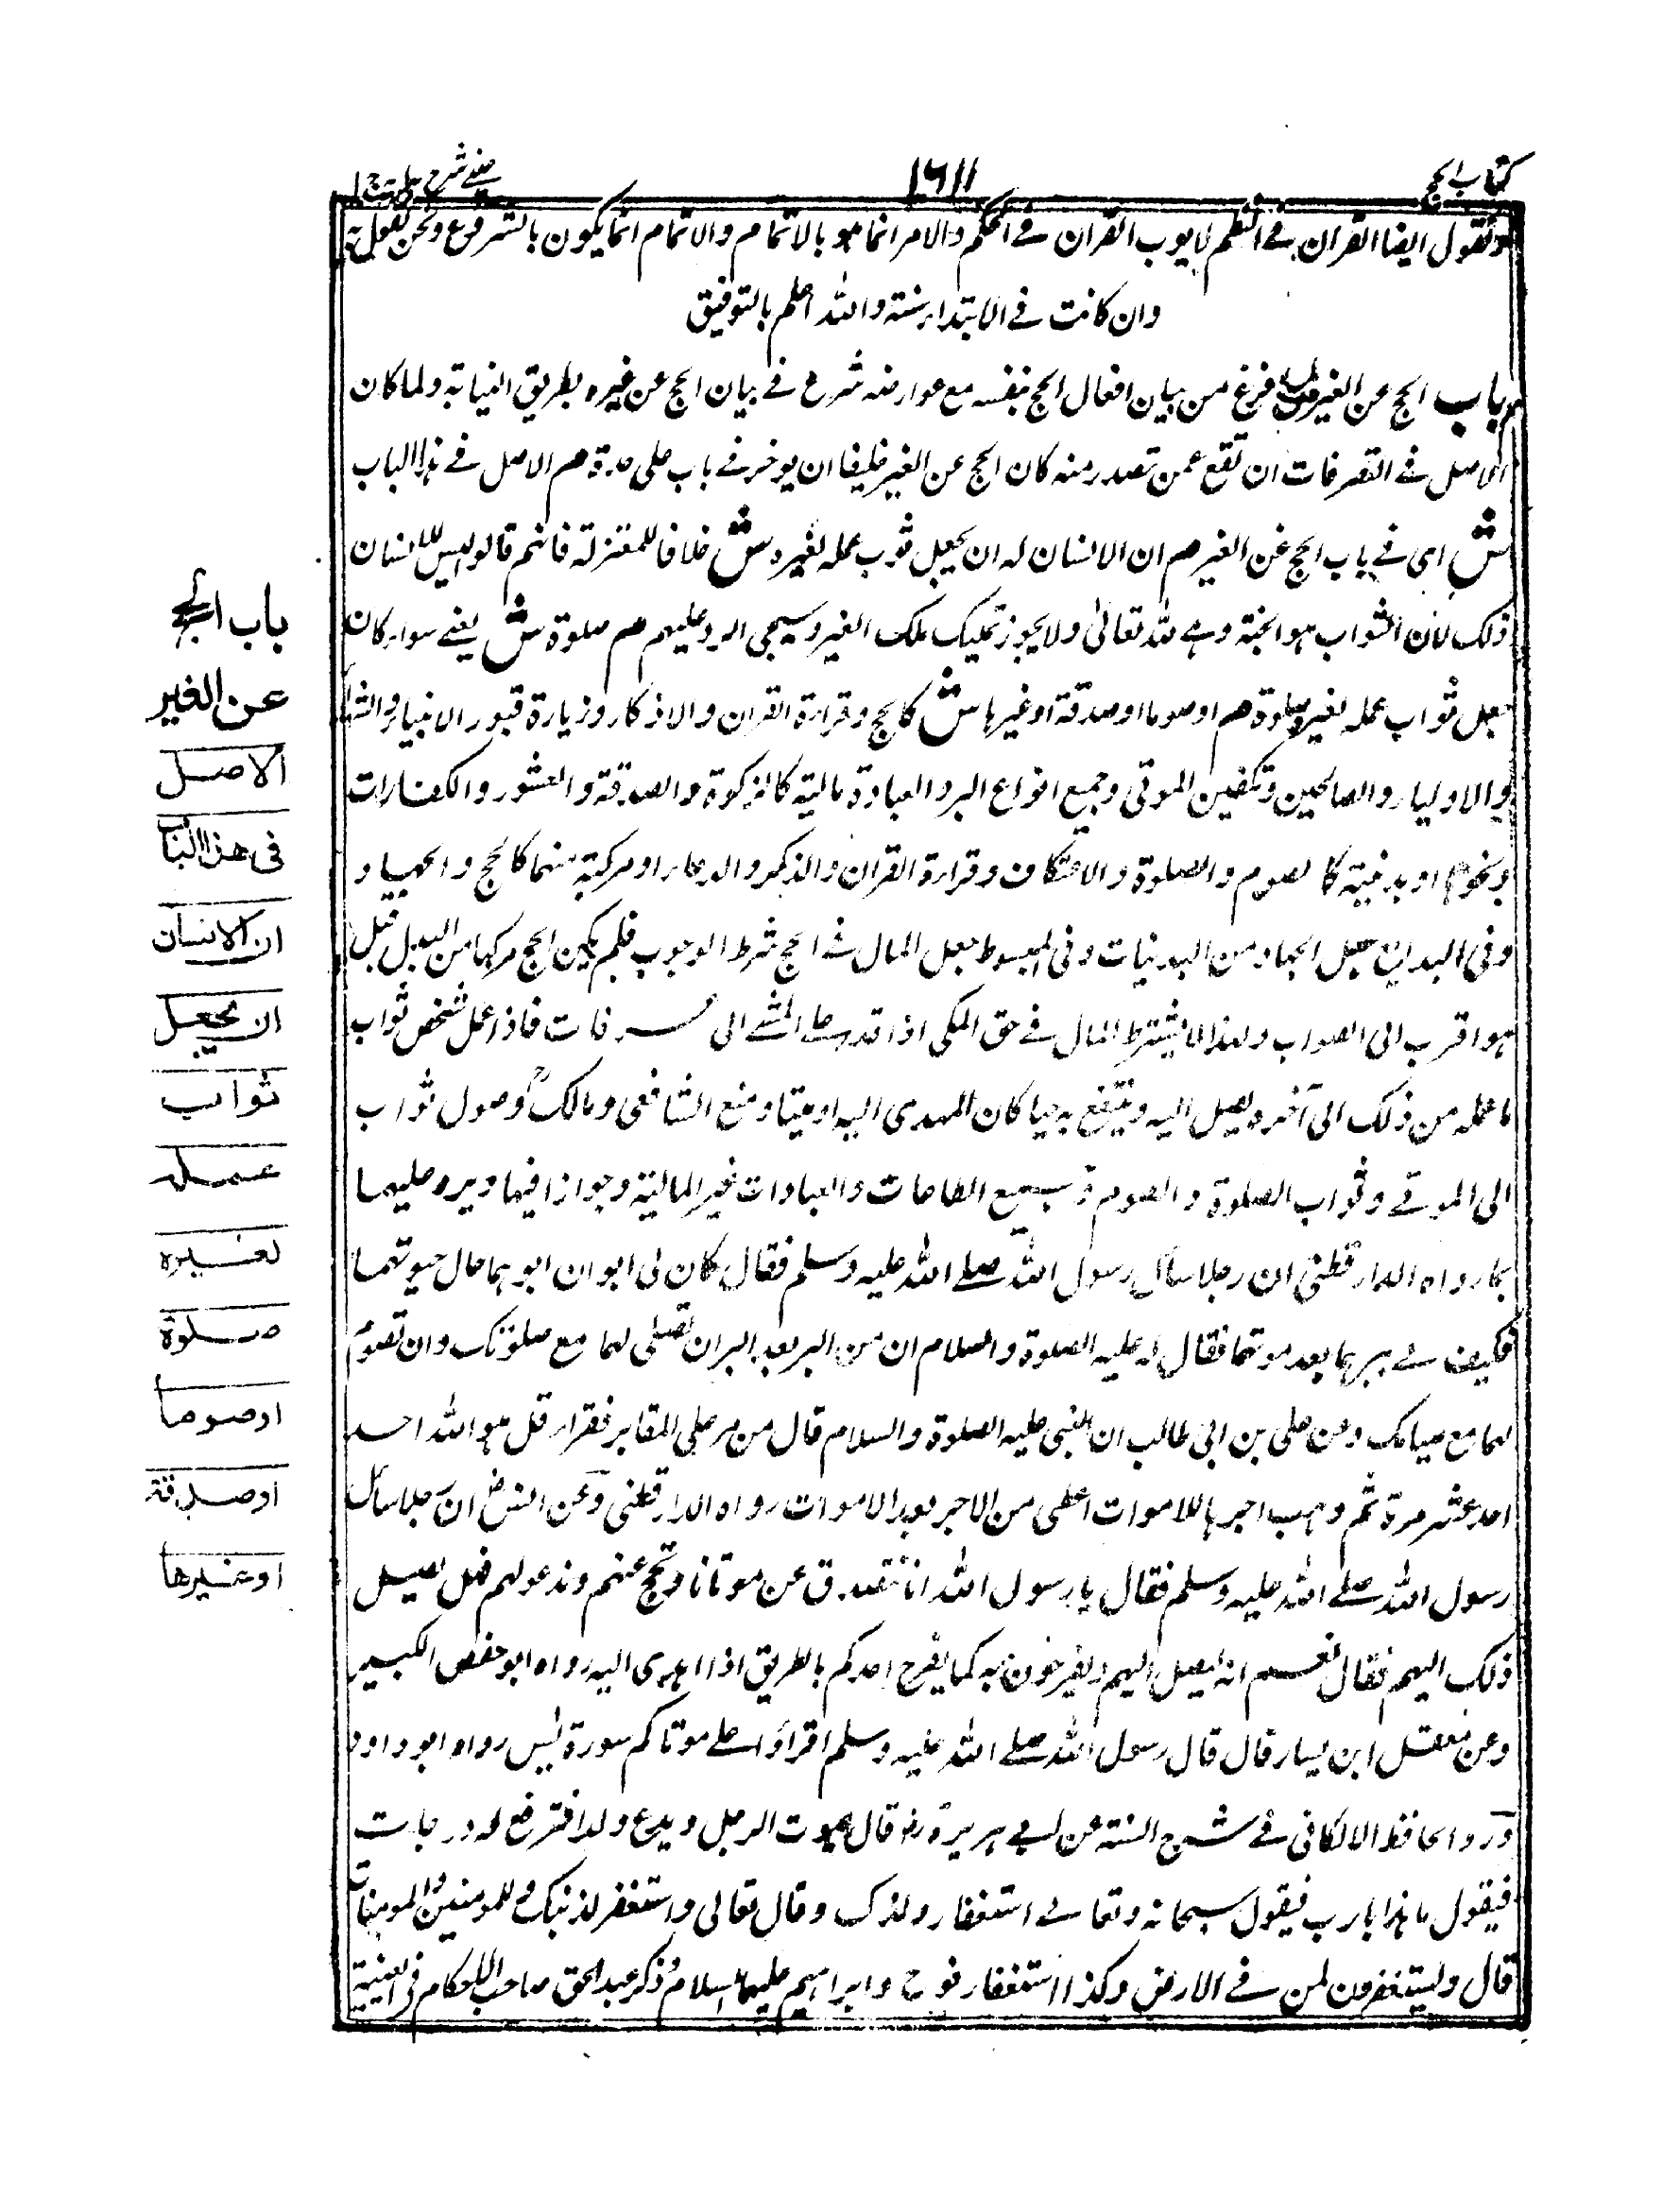 كتاب الحج
١٦١١
عينى شرح هدايه ج ١
ونقول ايضا القران فى النظم لا يوجب القران فى الحكم والامر انما هو بالاتمام والاتمام انما يكون بالشروع ونحن نقول به
وان كانت فى الابتداء سنة والله اعلم بالتوفيق
م باب الحج عن الغير ش فرغ من بيان افعال الحج بنفسه مع عوارضه شرع فى بيان الحج عن غيره بطريق النيابة ولما كان
الاصل فى التصرفات ان تقع عمن تصدر منه كان الحج عن الغير خليقا ان يوخر فى باب على حدة م الاصل فى هذا الباب
ش اى فى باب الحج عن الغير م ان الانسان له ان يجعل ثواب عمله لغيره ش خلافا للمعتزلة فانهم قالوا ليس للانسان
ذلك لان الثواب هو الجنة وهى لله تعالى ولا يجوز تمليك ملك الغير وسيجى الرد عليهم م صلوة ش يعنى سواء كان
جعل ثواب عمله لغيره صلوة م او صوما او صدقة او غيرها ش كالحج وقراءة القران والاذكار وزيارة قبور الانبياء والشهداء
والاولياء والصالحين وتكفين الموتى وجميع انواع البر والعبادة مالية كالزكوة والصدقة والعشور والكفارات
ونحوها او بدنية كالصوم والصلوة والاعتكاف وقراءة القران والذكر والدعاء او مركبة منهما كالحج والجهاد
وفى البدائع جعل الجهاد من البدنيات وفى المبسوط جعل المال فى الحج شرط الوجوب فلم يكن الحج مركبا من البدل قيل
هو اقرب الى الصواب ولهذا لا يشترط المال فى حق المكى اذا قدر على المشى الى عرفات فاذا عمل شخص ثواب
ما عمله من ذلك الى آخر ويصل اليه وينتفع به حيا كان المهدى اليه او ميتا ومنع الشافعى ومالك وصول ثواب
الى الموتى وثواب الصلوة والصوم وجميع الطاعات والعبادات غير المالية وجوازا فيها ويرد عليهما
بما رواه الدارقطنى ان رجلا سأل رسول الله صلى الله عليه وسلم فقال كان لى ابوان ابرهما حال حيوتهما
فكيف لى ببرهما بعد موتهما فقال له عليه الصلوة والسلام ان من البر بعد البر ان تصلى لهما مع صلوتك وان تصوم
لهما مع صيامك وعن على بن ابى طالب ان النبى عليه الصلوة والسلام قال من مر على المقابر فقرأ قل هو الله احد
احد عشر مرة ثم وهب اجرها للاموات اعطى من الاجر بعدد الاموات رواه الدارقطنى وعن انس رض ان رجلا سأل
رسول الله صلى الله عليه وسلم فقال يا رسول الله انا نتصدق عن موتانا ونحج عنهم وندعو لهم فهل يصل
ذلك اليهم فقال نعم انه ليصل اليهم ويفرحون به كما يفرح احدكم بالطريق اذا اهدى اليه رواه ابو حفص الكبير
وعن معقل ابن يسار قال قال رسول الله صلى الله عليه وسلم اقرأوا على موتاكم سورة يس رواه ابو داود
وروا الحافظ الالكائى فى شرح السنة عن ابى هريرة رض قال يموت الرجل ويدع ولدا فترفع له درجات
فيقول ما هذا يا رب فيقول سبحانه وتعالى استغفار ولدك وقال تعالى واستغفر لذنبك وللمومنين والمومنات
قال ويستغفرون لمن فى الارض وكذا استغفار نوح وابراهيم عليهما السلام وذكر عبد الحق صاحب الاحكام فى
باب الحج
عن الغير
الاصل
فى هذا الباب
ان الانسان
ان يجعل
ثواب
عمله
لغيره
صلوة
اوصوما
اوصدقة
اوغيرها